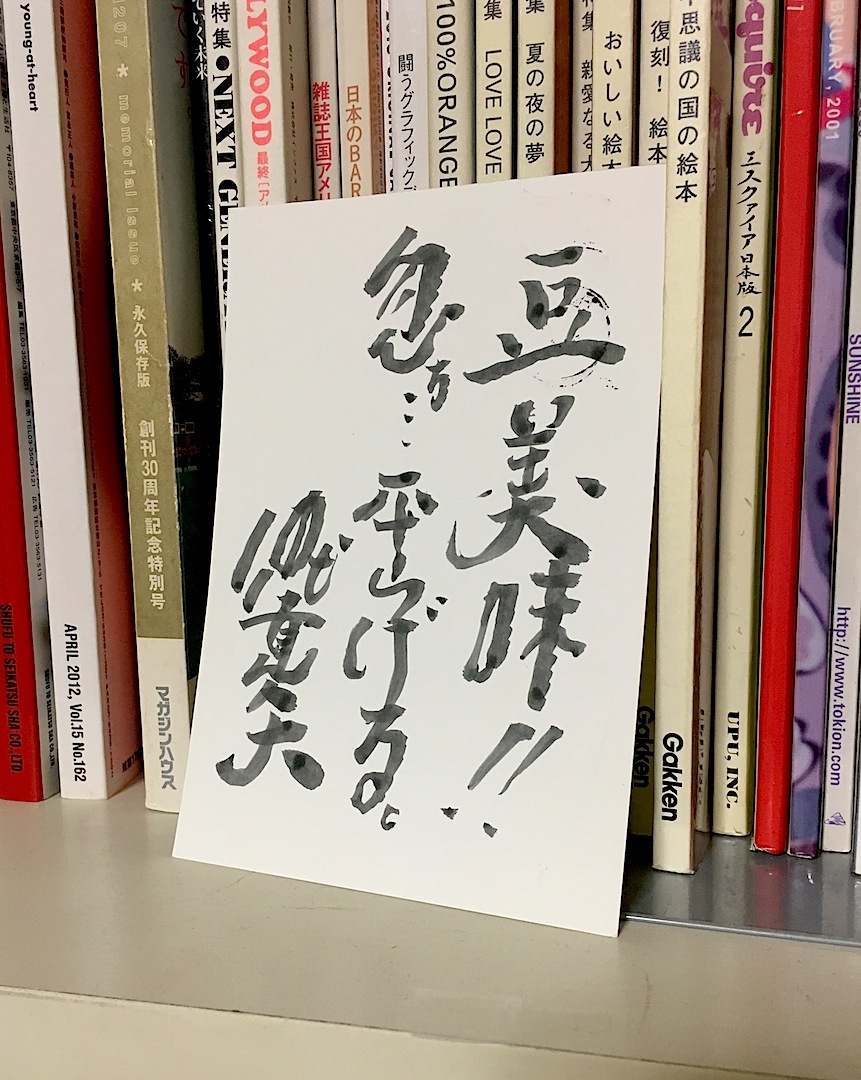 豆美味!!
忽ち…平らげる。
young-at-heart
SHUFU TO SEIKATSU SHA CO., LTD
APRIL 2012, Vol.15 No.162
1207 * memorial issue * 永久保存版
創刊30周年記念特別号
マガジンハウス
ていく未来
特集●NEXT GENER
LYWOOD
最終
雑誌王国アメリ
日本のBAR
闘うグラフィックデ
100%ORANGE
集 LOVE LOVE
集 夏の夜の夢
特集 親愛なる
おいしい絵本
復刻! 絵本
思議の国の絵本
Gakken
Gakken
エスクァイア日本版 2
UPU, INC.
FEBRUARY, 2001
http://www.tokion.com
SUNSHINE